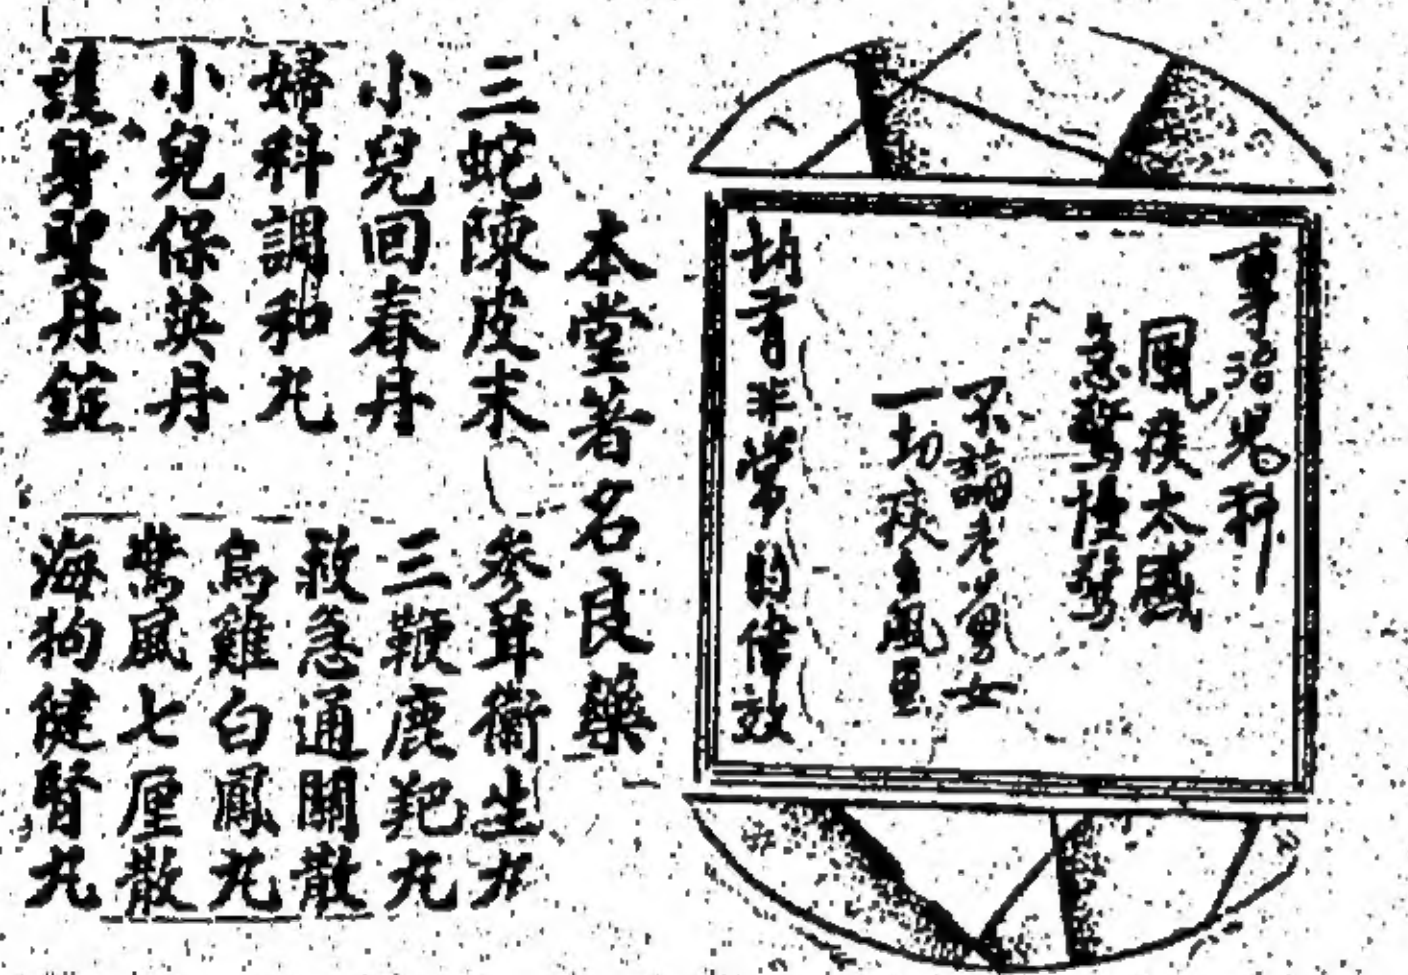 專治兒科
風痰太盛
急驚慢驚
不論老幼男女
一切痰火風
均有非常的偉效
本堂著名良藥
三蛇陳皮末
小兒回春丹
婦科調和丸
小兒保英丹
護身聖丹錠
參茸衛生丸
三鞭鹿羓丸
救急通關散
烏雞白鳳丸
驚風七厘散
海狗健腎丸